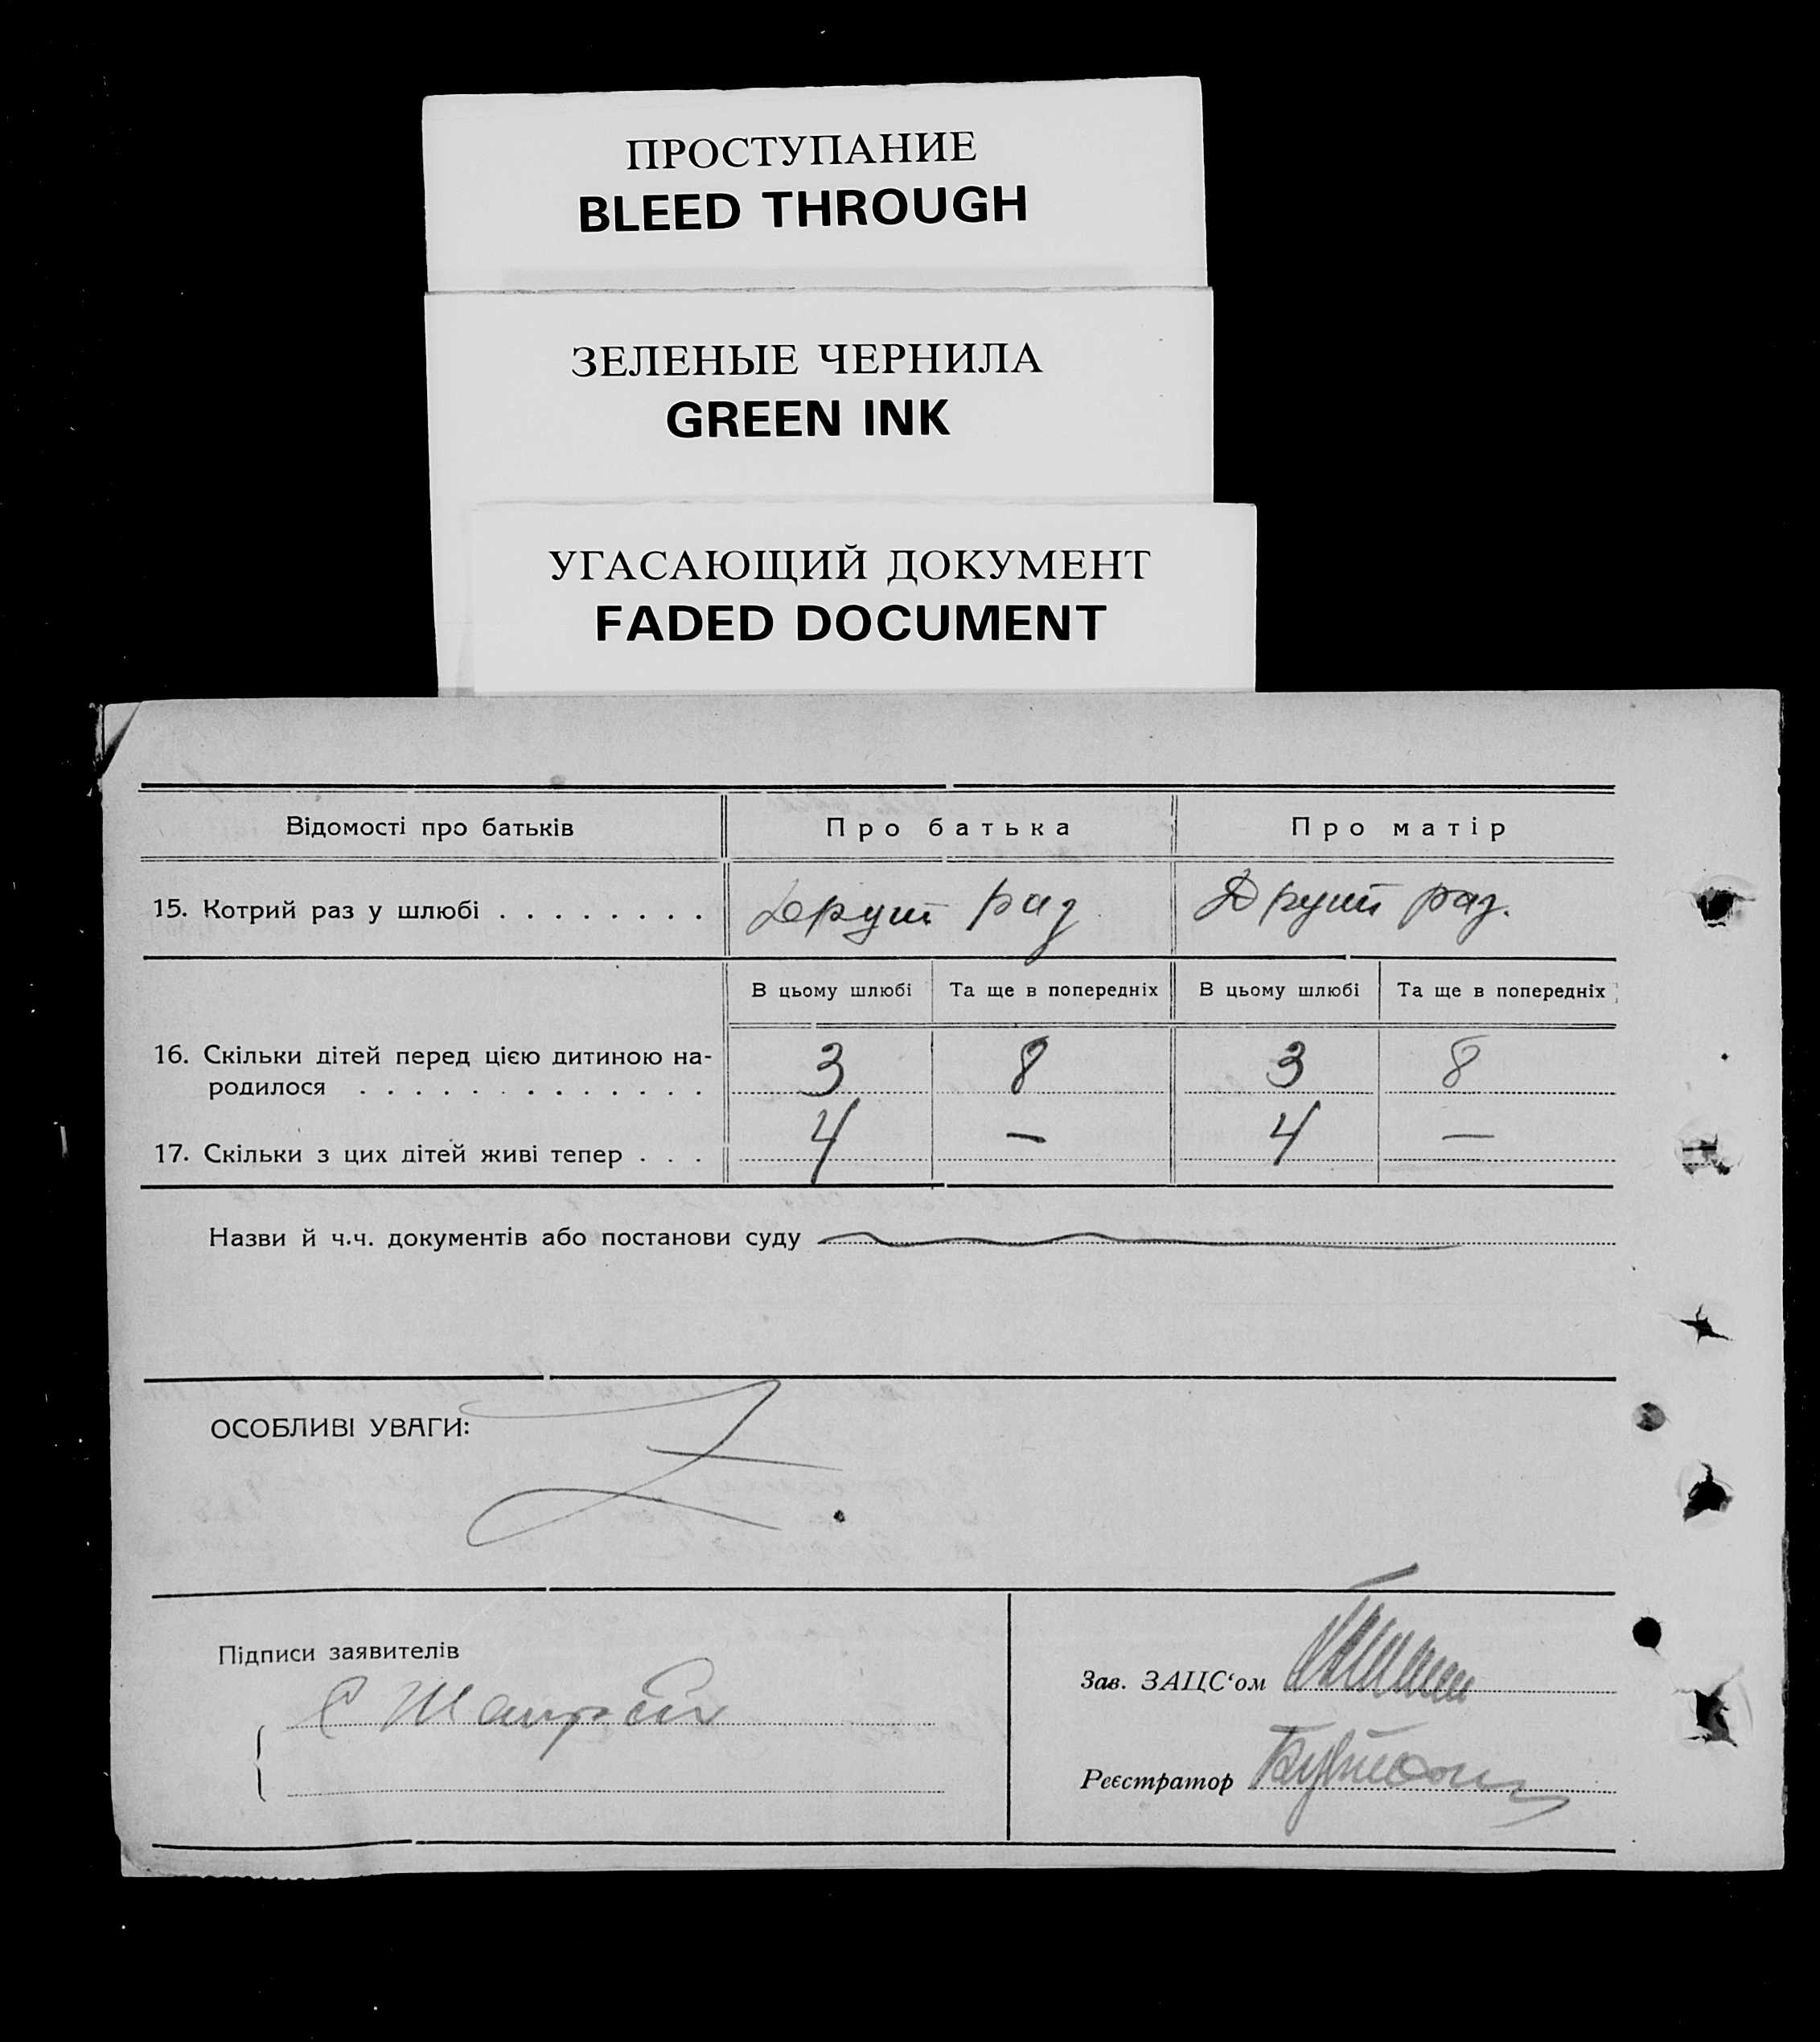 ПРОСТУПАНИЕ
BLEED THROUGH
ЗЕЛЕНЫЕ ЧЕРНИЛА
GREEN INK
УГАСАЮЩИЙ ДОКУМЕНТ
FADED DOCUMENT
Відомості про батьків Про батька Про матір
15. Котрий раз у шлюбі . . . . . . . . Другий раз Другий раз.
В цьому шлюбі Та ще в попередніх В цьому шлюбі Та ще в попередніх
16. Скільки дітей перед цією дитиною на-
родилося . . . . . . . . . . . . . 3 8 3 8
17. Скільки з цих дітей живі тепер . . . 4 — 4 —
Назви й ч.ч. документів або постанови суду
ОСОБЛИВІ УВАГИ:
Підписи заявителів
Зав. ЗАЦС‘ом
Реєстратор